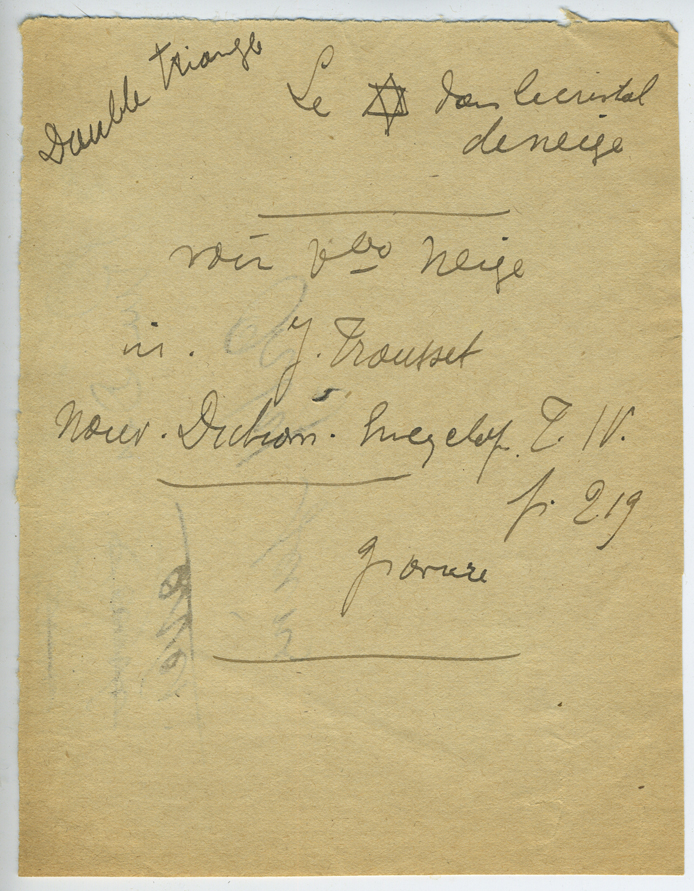 Double triangle
Le ✡ dans le cristal
de neige
voir vbo Neige
in. J. Trousset
Nouv. Diction. Encyclop. T. IV.
p. 219
gravure